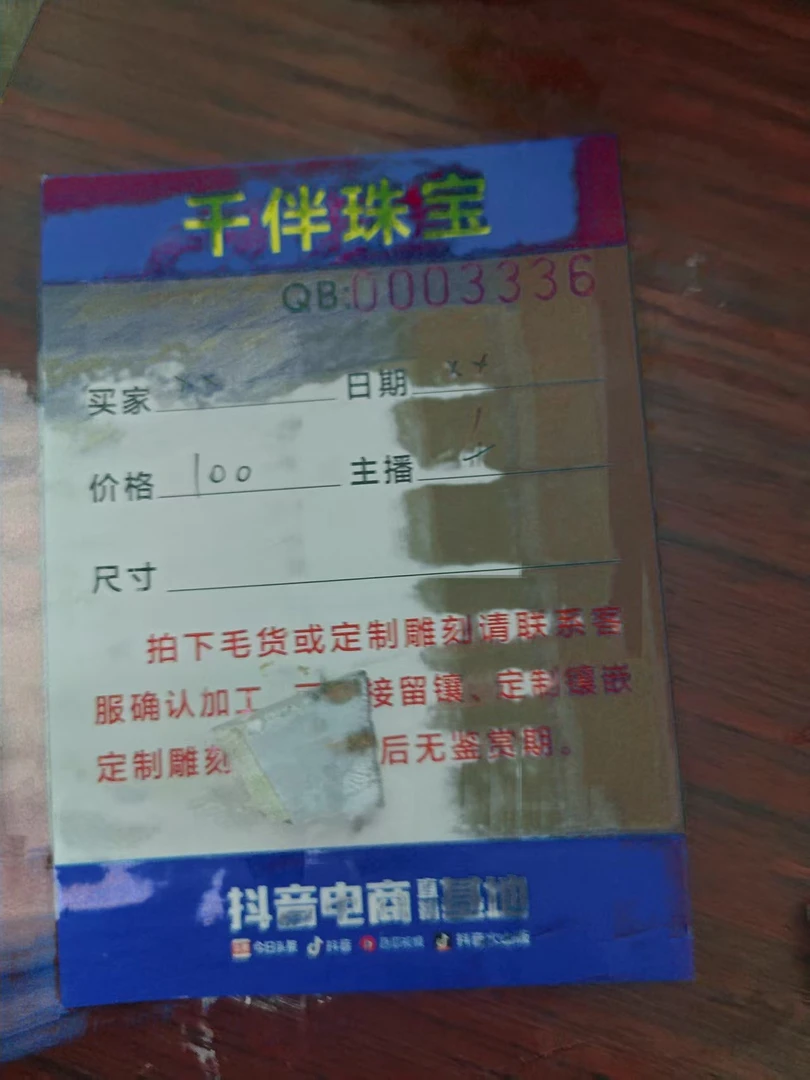 千伴珠宝
QB:0003336
买家 xx 日期 xx
价格 100 主播
尺寸
拍下毛货或定制雕刻请联系客
服确认加工 接留镶、定制镶嵌
定制雕刻 后无鉴赏期。
抖音电商直播基地
今日头条 抖音 西瓜视频 抖音火山版